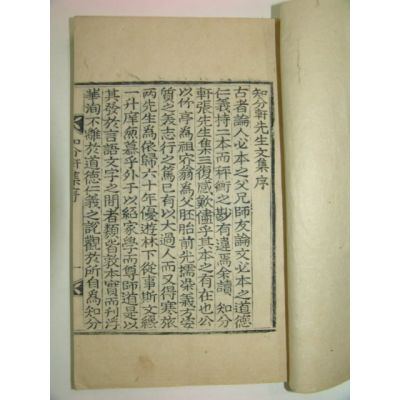 知分軒先生文集序
古者論人必本之父兄師友論文必本之道德
仁義持二本而秤衡之尠有違焉余讀 知分
軒張先生集三復感歎儘乎其本之有在也公
以竹亭爲祖容翁爲父胚胎前光擩染義方姿
質之美志行之篤已有以大過人而又得寒旅
兩先生爲依歸六十年優遊林下從事斯文
一升庠慕乎外于以紹家學而尊師道是以
其發於言語文字之間者類皆敦本實而浮
華洵不離於道德仁義之說觀於所自爲知分
知分軒集序
一